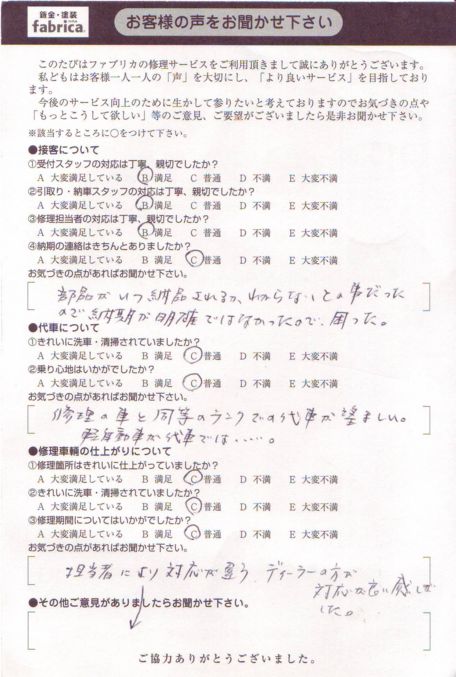 鈑金・塗装
fabrica.
お客様の声をお聞かせ下さい
このたびはファブリカの修理サービスをご利用頂きまして誠にありがとうございます。
私どもはお客様一人一人の「声」を大切にし、「より良いサービス」を目指しており
ます。
今後のサービス向上のために生かして参りたいと考えておりますのでお気づきの点や
「もっとこうして欲しい」等のご意見、ご要望がございましたら是非お聞かせ下さい。
※該当するところに○をつけて下さい。
●接客について
①受付スタッフの対応は丁寧、親切でしたか?
A 大変満足している B 満足 C 普通 D 不満 E 大変不満
②引取り・納車スタッフの対応は丁寧、親切でしたか?
A 大変満足している B 満足 C 普通 D 不満 E 大変不満
③修理担当者の対応は丁寧、親切でしたか?
A 大変満足している B 満足 C 普通 D 不満 E 大変不満
④納期の連絡はきちんとありましたか?
A 大変満足している B 満足 C 普通 D 不満 E 大変不満
お気づきの点があればお聞かせ下さい。
部品がいつ納品されるか、わからないとの事だった
ので納期が明確ではなかったので、困った。
●代車について
①きれいに洗車・清掃されていましたか?
A 大変満足している B 満足 C 普通 D 不満 E 大変不満
②乗り心地はいかがでしたか?
A 大変満足している B 満足 C 普通 D 不満 E 大変不満
お気づきの点があればお聞かせ下さい。
修理の車と同等のランクでの代車が望ましい。
軽自動車が代車では・・・・・。
●修理車輌の仕上がりについて
①修理箇所はきれいに仕上がっていましたか?
A 大変満足している B 満足 C 普通 D 不満 E 大変不満
②きれいに洗車・清掃されていましたか?
A 大変満足している B 満足 C 普通 D 不満 E 大変不満
③修理期間についてはいかがでしたか?
A 大変満足している B 満足 C 普通 D 不満 E 大変不満
お気づきの点があればお聞かせ下さい。
担当者により対応が違う ディーラーの方が
対応が良い感じが
した。
●その他ご意見がありましたらお聞かせ下さい。
ご協力ありがとうございました。